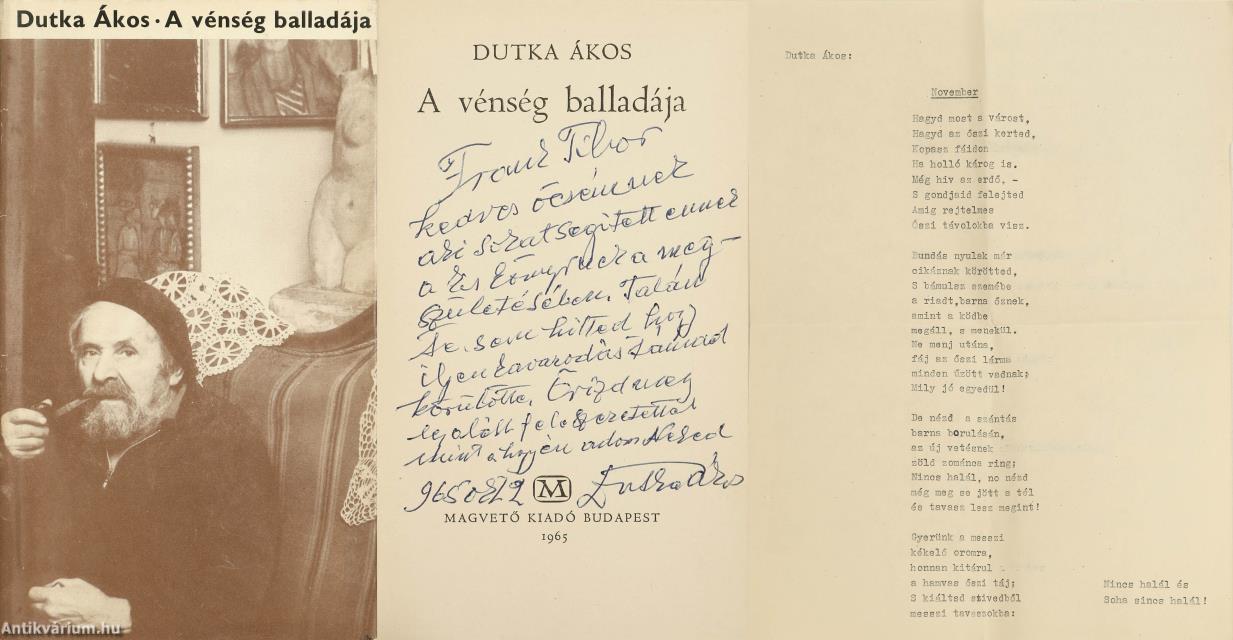 Dutka Ákos · A vénség balladája
DUTKA ÁKOS
A vénség balladája
Frank Tibor
kedves öcsémnek
aki sokat segített ennek
a kis könyvnek a meg-
születésében. Talán
Te sem hitted hogy
ilyen kavarodás támad
körülötte. Őrizd meg
legalább fele szeretettel
mint ahogyan adom Neked
965
Dutka Ákos
M
MAGVETŐ KIADÓ BUDAPEST
1965
Dutka Ákos:
November
Hagyd most a várost,
Hagyd az őszi kerted,
Kopasz fáidon
Ha holló károg is.
Még hiv az erdő, -
S gondjaid felejted
Amig rejtelmes
Őszi távolokba visz.
Bundás nyulak már
cikáznak körötted,
S bámulsz szemébe
a riadt,barna őznek,
amint a ködbe
megáll, s menekül.
Ne menj utána,
fáj az őszi lárma
minden űzött vadnak;
Mily jó egyedül!
De nézd a szántás
barna borulásán,
az új vetésnek
zöld zománca ring;
Nincs halál, no nézd
még meg se jött a tél
és tavasz lesz megint!
Gyerünk a messzi
kékelő oromra,
honnan kitárul
a hamvas őszi táj;
S kiáltsd szivedből
messzi tavaszokba:
Nincs halál és
Soha sincs halál!
Antikvárium.hu